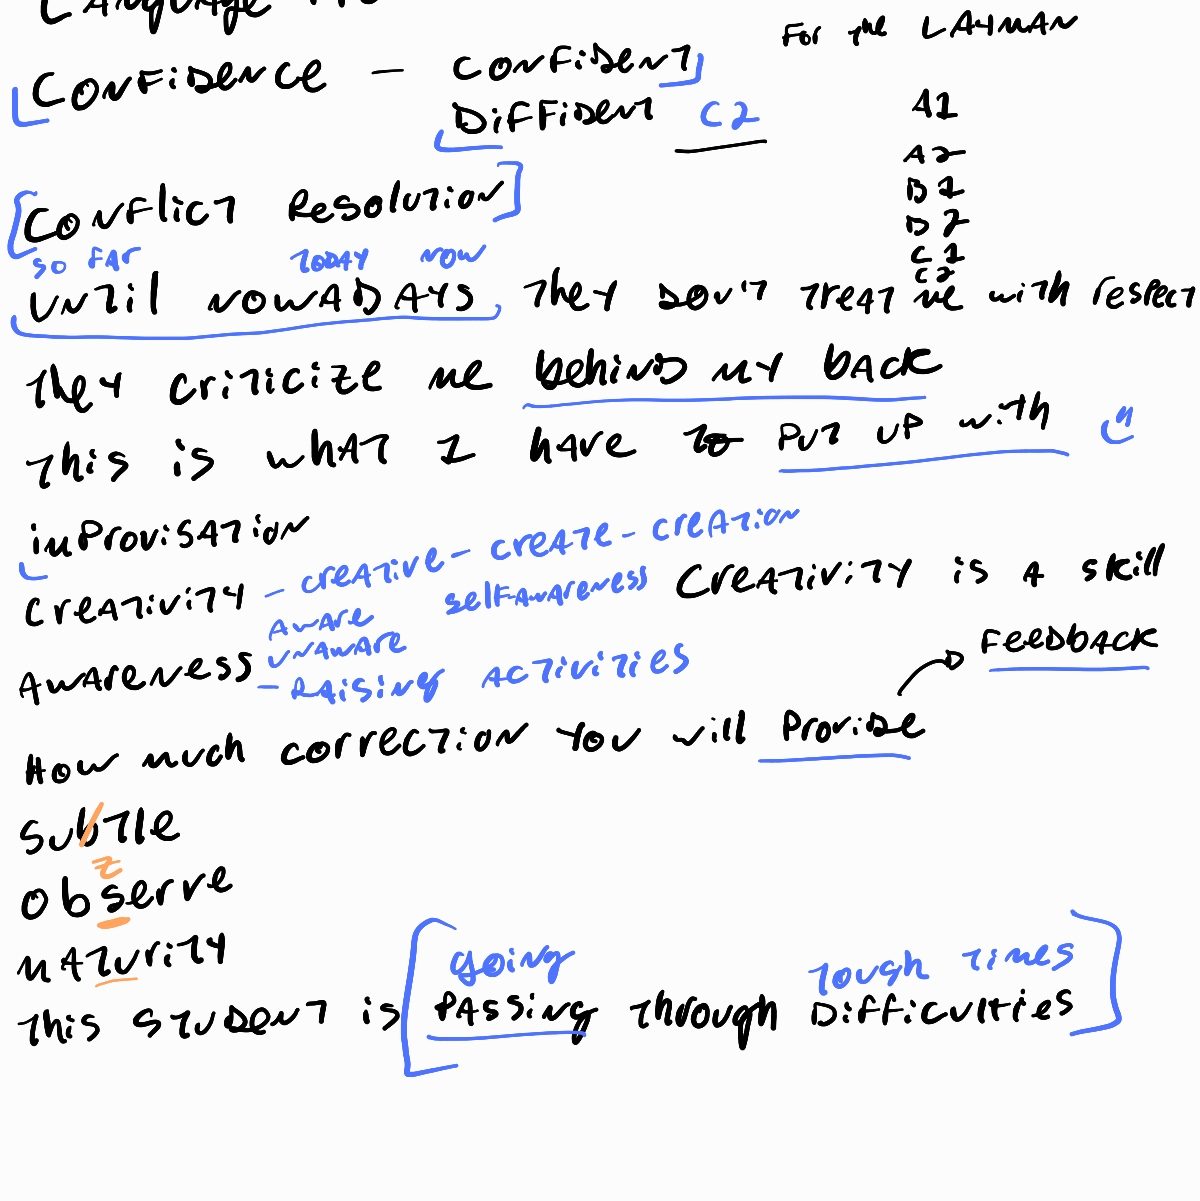 Language
For the LAYMAN
Confidence – Confident
Diffident C2
A1
A2
B1
B2
C1
C2
Conflict Resolution
so far today now
until nowadays they don't treat me with respect
they criticize me behind my back
this is what I have to put up with
improvisation
creativity – creative – create – creation
Creativity is a skill
aware self-awareness
unaware
Awareness – Raising activities
Feedback
How much correction you will provide
subtle
z
observe
maturity
going tough times
this student is passing through difficulties